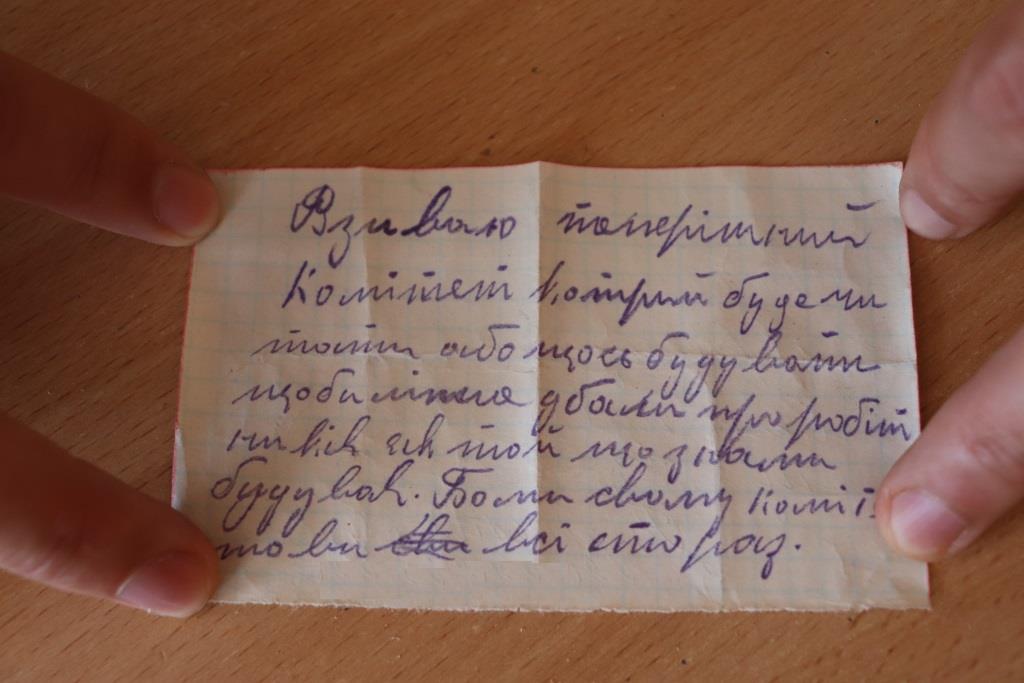 Взиваю поперішний
Комітет котрий буде чи
тати або щось будувати
щоби ліпше дбали про робіт
ників як той що з нами
будував. Бо ми свому коміт
тови всі сто раз.